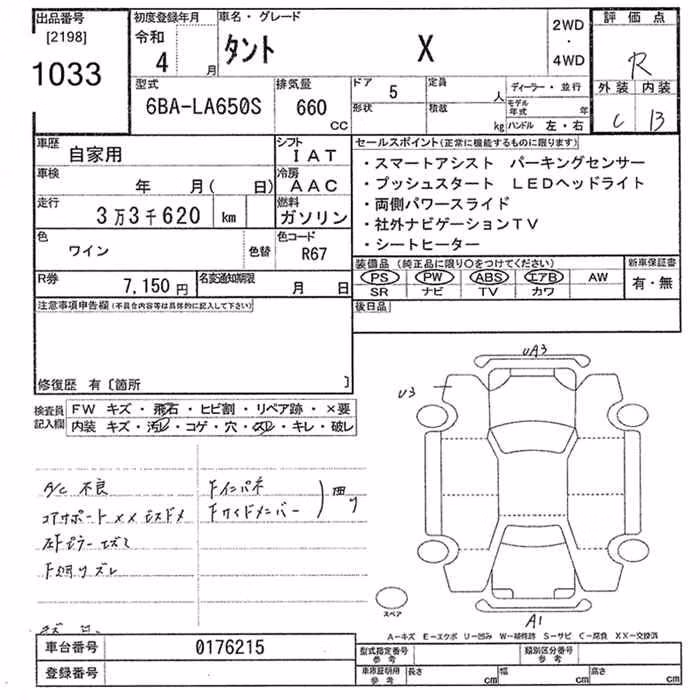 出品番号 初度登録年月 車名・グレード 評価点
[2198] 令和 2WD
1033 4 月 タント X ・ 4WD R
型式 排気量 ドア 5 定員 人 ディーラー・並行 外装 内装
6BA-LA650S 660 CC 形状 積載 kg モデル年式 年 C B
ハンドル 左・右
車歴 自家用 シフト IAT セールスポイント(正常に機能するものに限ります)
・スマートアシスト パーキングセンサー
車検 年 月( 日) 冷房 AAC ・プッシュスタート LEDヘッドライト
走行 3万3千620 km 燃料 ガソリン ・両側パワースライド
・社外ナビゲーションTV
色 ワイン 色替 色コード R67 ・シートヒーター
R券 7,150円 名変通知期限 月 日 装備品(純正品に限り○をつけてください) 新車保証書
PS PW ABS エアB AW 有・無
SR ナビ TV カワ
注意事項申告欄(不具合内容等は具体的に記入して下さい) 後日品
修復歴 有〔箇所 〕
検査員記入欄 FW キズ・飛石・ヒビ割・リペア跡・×要
内装 キズ・汚レ・コゲ・穴・スレ・キレ・破レ
UA3
U3
A/C 不良 Fインパネ
コアサポート XX
Fサイドメンバー
スペア
A1
A-キズ E-エクボ U-凹み W-補修跡 S-サビ C-腐食 XX-交換済
車台番号 0176215 型式指定番号 参考 類別区分番号 参考
登録番号 車庫証明用 参考 長さ cm 幅 cm 高さ cm